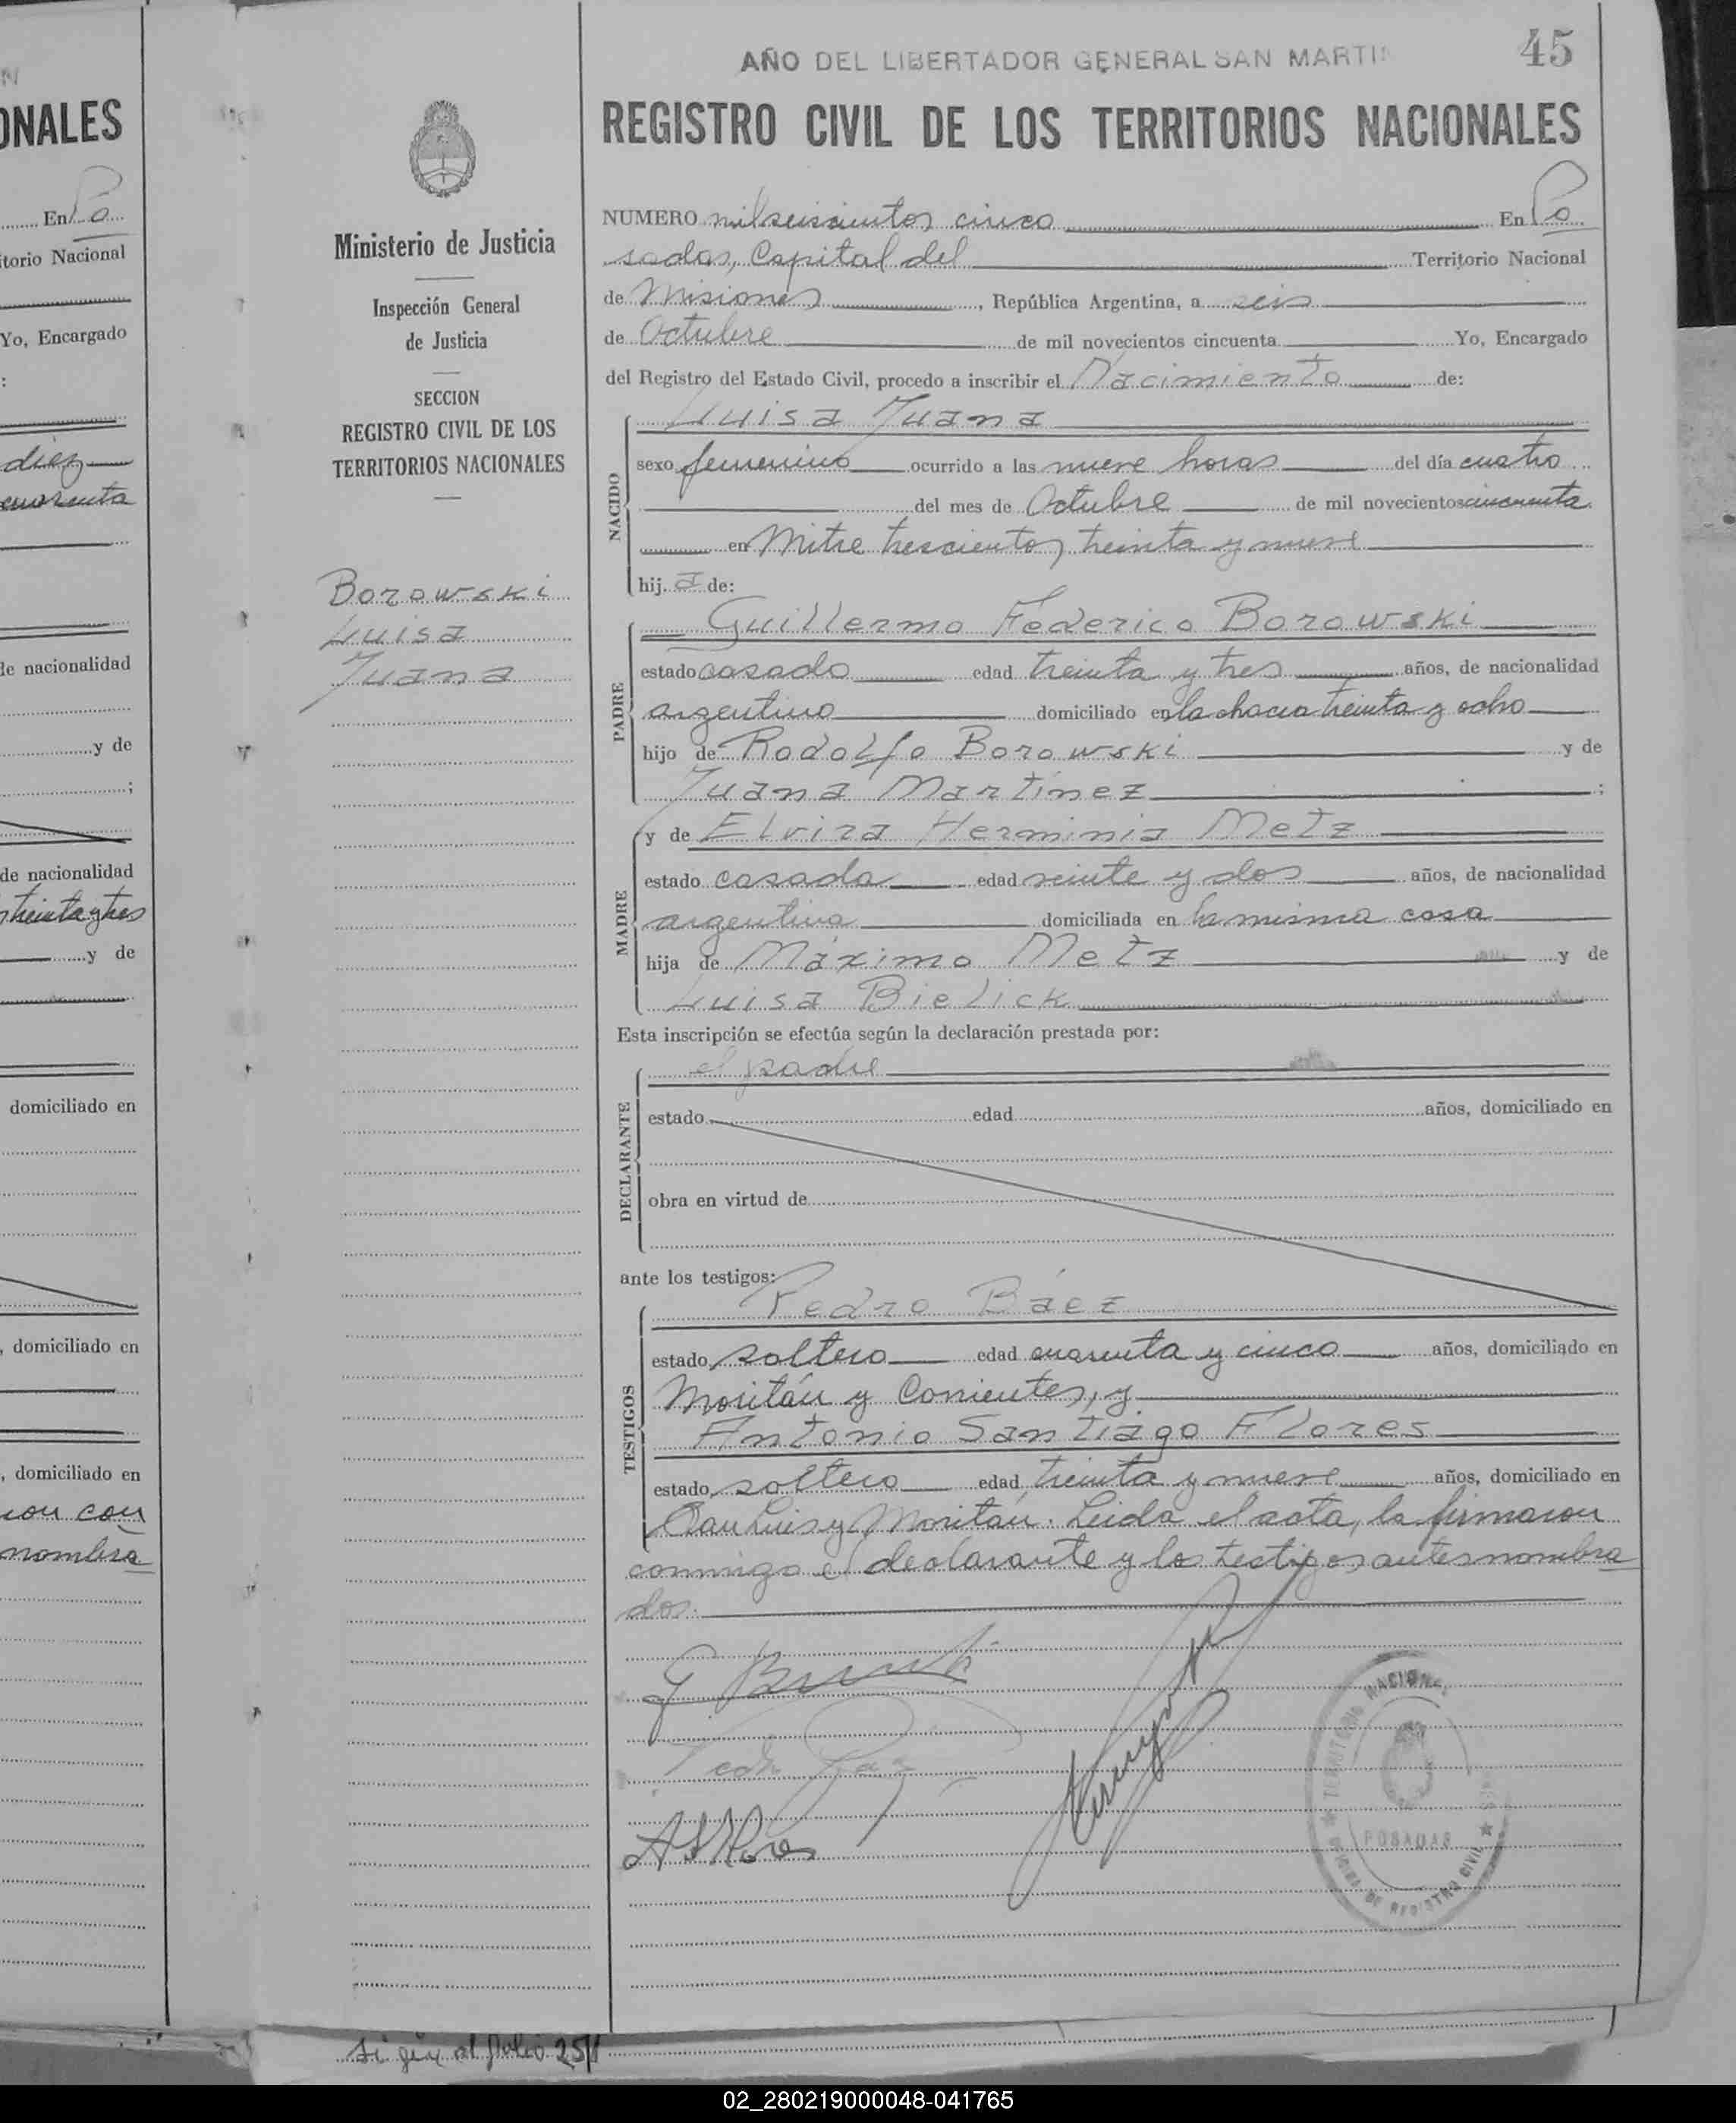 N
ONALES
En Po
itorio Nacional
Yo, Encargado
:
diez
cuarenta
de nacionalidad
y de
;
de nacionalidad
treinta y tres
y de
domiciliado en
, domiciliado en
, domiciliado en
ron con
nombra
Ministerio de Justicia
Inspección General
de Justicia
SECCION
REGISTRO CIVIL DE LOS
TERRITORIOS NACIONALES
Borowski
Luisa
Juana
AÑO DEL LIBERTADOR GENERAL SAN MARTIN
45
REGISTRO CIVIL DE LOS TERRITORIOS NACIONALES
NUMERO milseiscientos cinco En Po
sadas, Capital del Territorio Nacional
de Misiones, República Argentina, a seis
de Octubre de mil novecientos cincuenta Yo, Encargado
del Registro del Estado Civil, procedo a inscribir el Nacimiento de:
NACIDO
Luisa Juana
sexo femenino ocurrido a las nueve horas del día cuatro
del mes de Octubre de mil novecientos cincuenta
en Mitre trescientos treinta y nueve
hij a de:
PADRE
Guillermo Federico Borowski
estado casado edad treinta y tres años, de nacionalidad
argentino domiciliado en la chacra treinta y ocho
hijo de Rodolfo Borowski y de
Juana Martínez ;
MADRE
y de Elvira Herminia Metz
estado casada edad veinte y dos años, de nacionalidad
argentina domiciliada en la misma casa
hija de Máximo Metz y de
Luisa Bielick
Esta inscripción se efectúa según la declaración prestada por:
DECLARANTE
el padre
estado edad años, domiciliado en
obra en virtud de
ante los testigos:
TESTIGOS
Pedro Báez
estado soltero edad cuarenta y cinco años, domiciliado en
Moritán y Corrientes, y
Antonio Santiago Flores
estado soltero edad treinta y nueve años, domiciliado en
San Luis y Moritán. Leida el acta, la firmaron
conmigo el declarante y los testigos antes nombra
dos.
A S Flores
TERRITORIO NACIONAL
POSADAS
OFICINA DE REGISTRO CIVIL
al folio 251
02_280219000048-041765